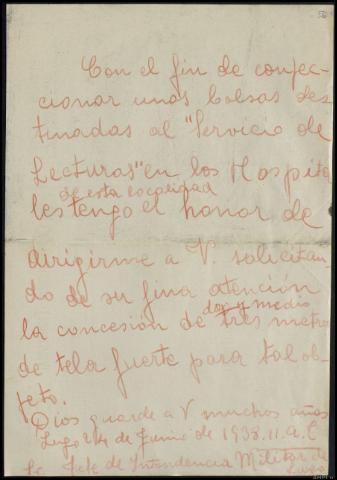 Con el fin de confec-
cionar unas bolsas des
tinadas al "Servicio de
Lecturas" en los Hospita
de esta localidad
les tengo el honor de
dirigirme a V. solicitan-
do de su fina atención
dos y medio
la concesión de tres metros
de tela fuerte para tal ob-
jeto.
Dios guarde a V muchos años
Lugo 24 de Junio de 1938. II. A. T
Sr. Jefe de Intendencia Militar de
Lugo